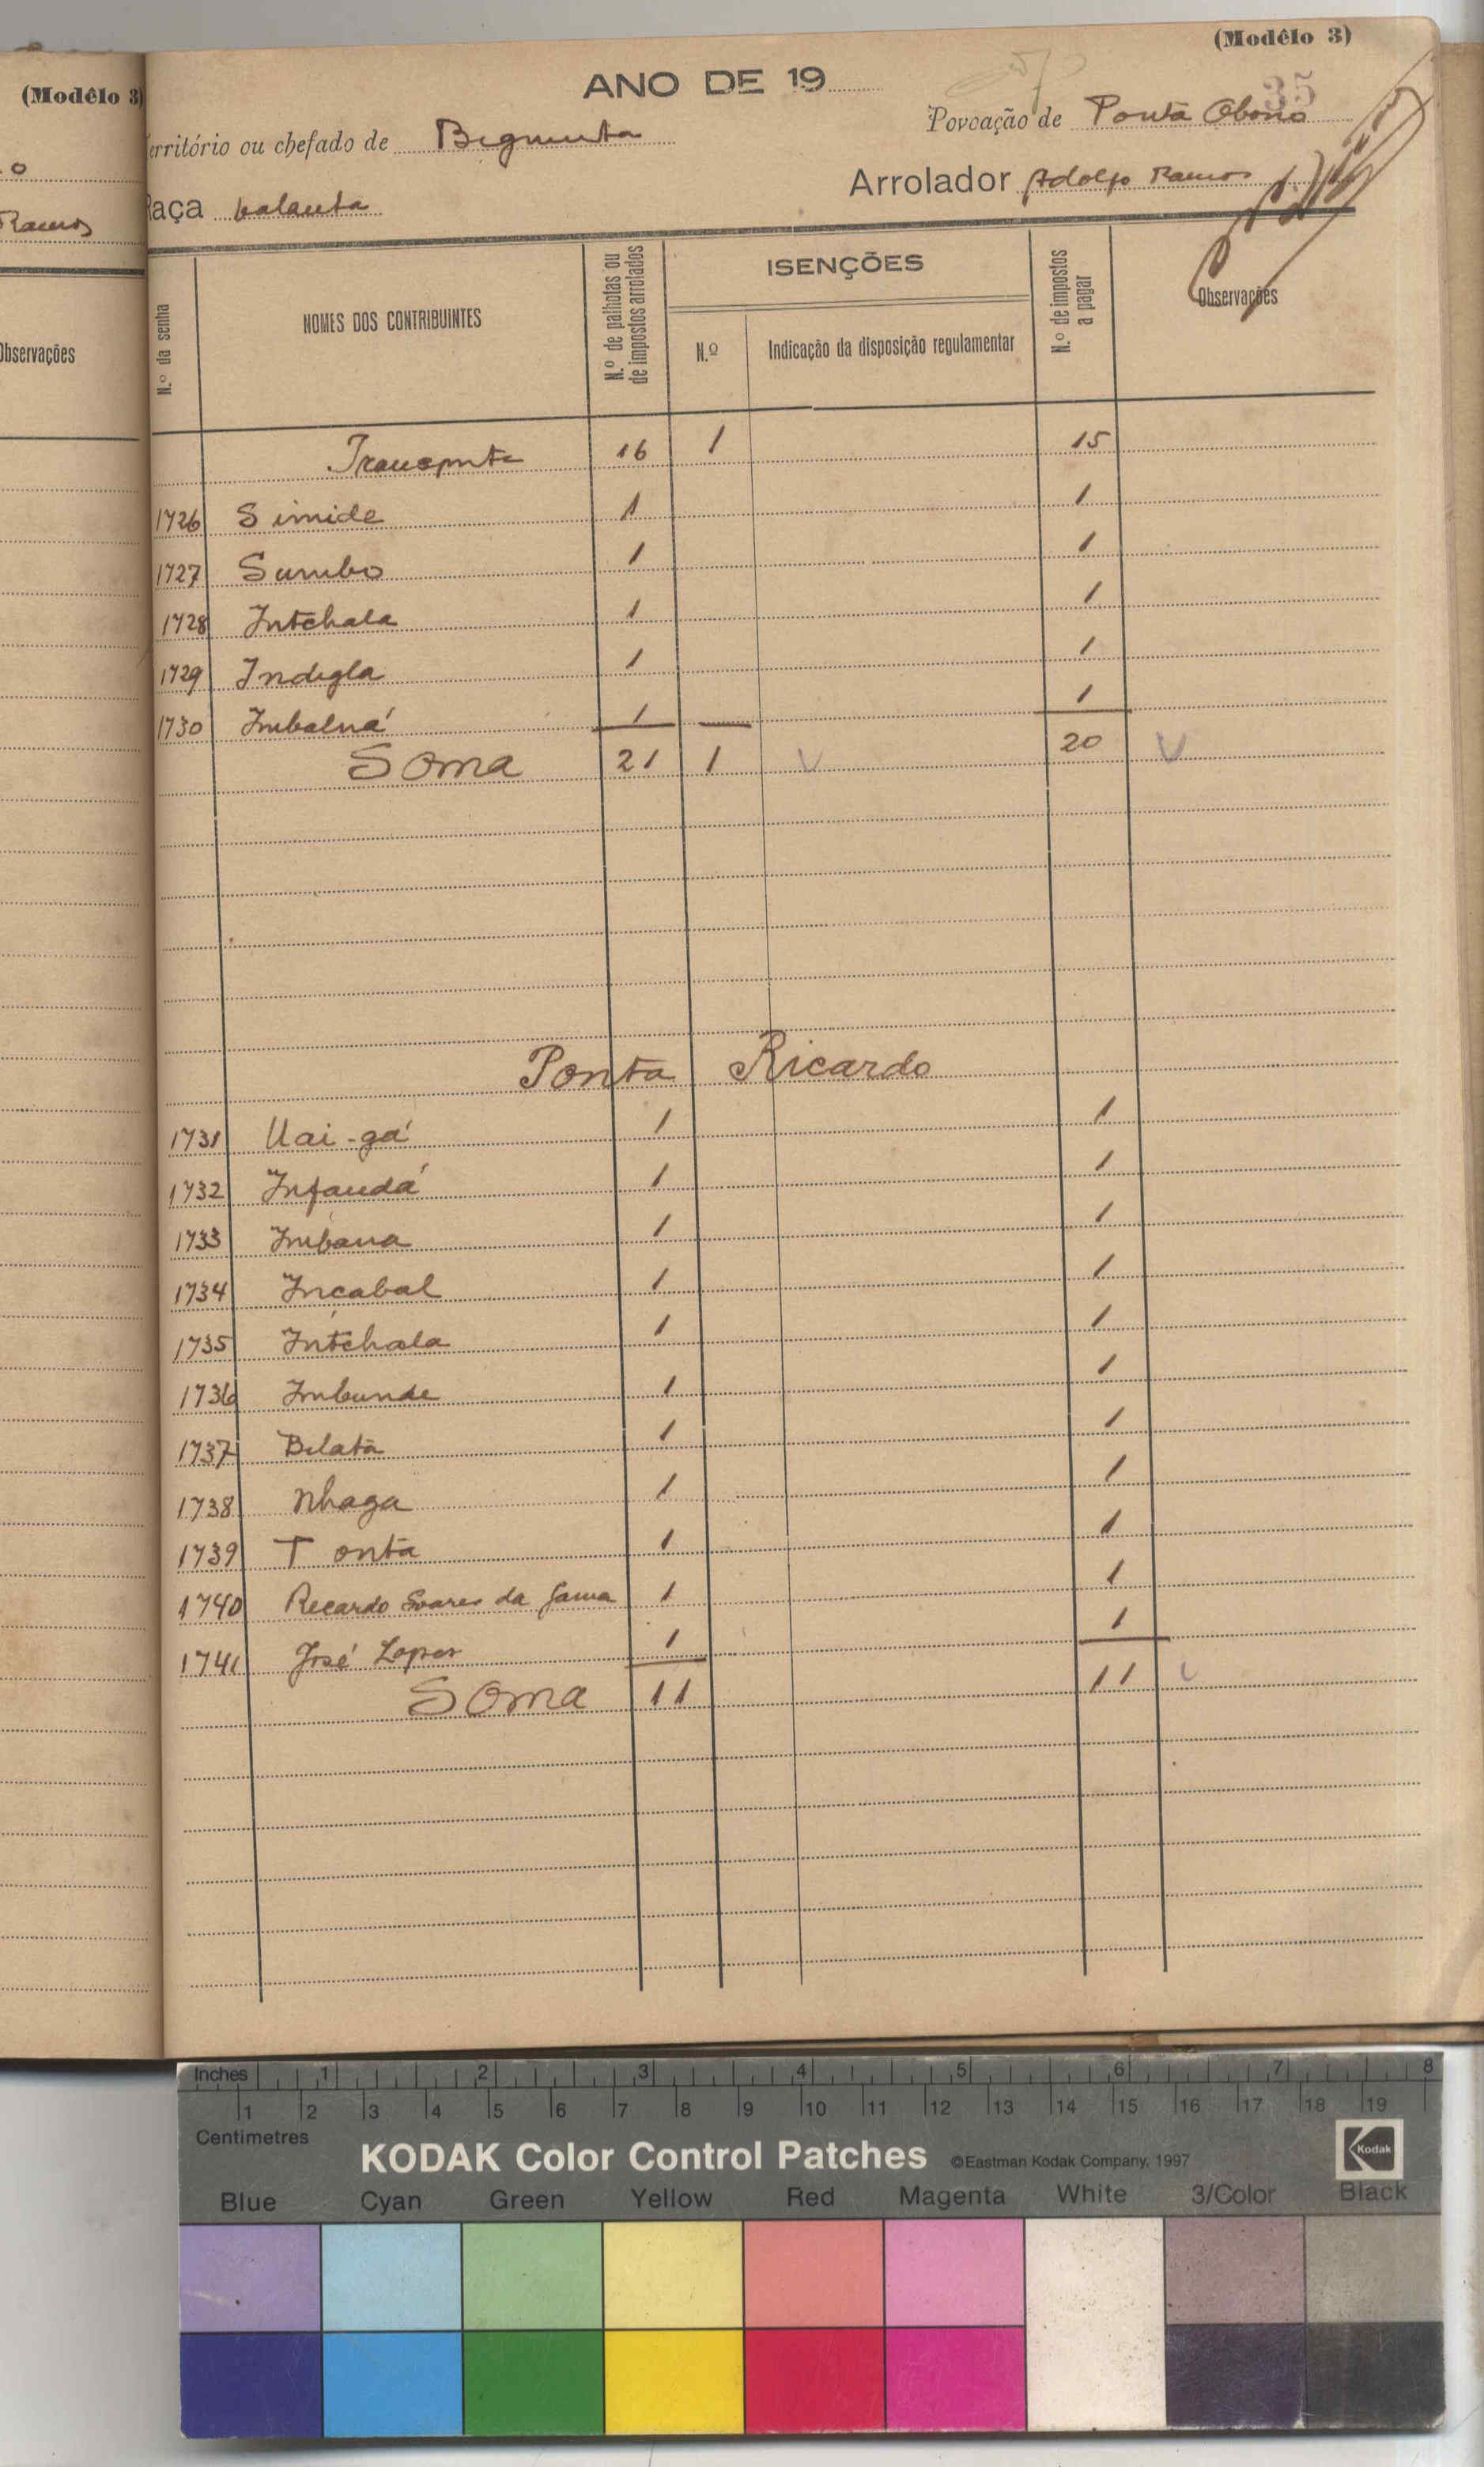 (Modêlo 3)
o
Ramos
Observações
(Modêlo 3)
35
ANO DE 19
Território ou chefado de Bigmenta
Povoação de Ponta Obono
Raça balanta
Arrolador Adolfo Ramos
N.º da senha
NOMES DOS CONTRIBUINTES
N.º de palhotas ou de impostos arrolados
ISENÇÕES
N.º
Indicação da disposição regulamentar
N.º de impostos a pagar
Observações
Transporte 16 1 15
1726 Simide 1 1
1727 Sumbo 1 1
1728 Intchala 1 1
1729 Indigla 1 1
1730 Imbalná 1 1
Soma 21 1 20
Ponta Ricardo
1731 Uai-gá 1 1
1732 Infandá 1 1
1733 Imbana 1 1
1734 Inçabal 1 1
1735 Intchala 1 1
1736 Imbunde 1 1
1737 Bilata 1 1
1738 Nhaga 1 1
1739 Tonta 1 1
1740 Recardo Soares da Gama 1 1
1741 José Lopes 1 1
Soma 11 11
Inches 1 2 3 4 5 6 7 8
1 2 3 4 5 6 7 8 9 10 11 12 13 14 15 16 17 18 19
Centimetres
KODAK Color Control Patches ©Eastman Kodak Company, 1997 Kodak
Blue Cyan Green Yellow Red Magenta White 3/Color Black